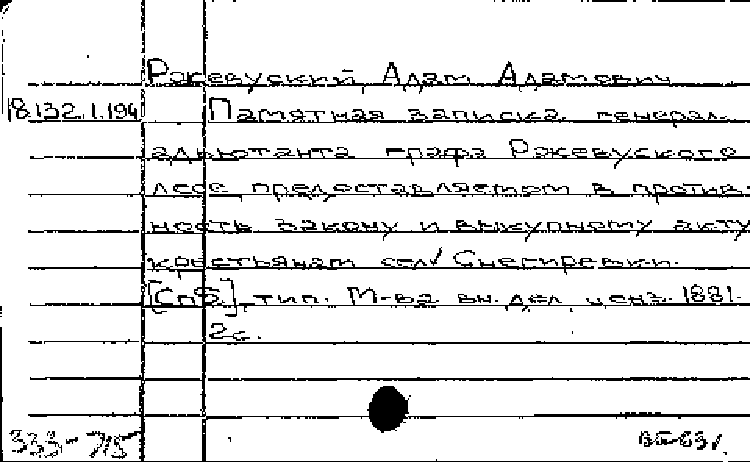 Ржевуский, Адам Адамович
18.132.1.194 Памятная записка генерал-
адъютанта графа Ржевуского
лесе предоставляемом в против-
ность закону и выкупному акту
крестьянам сел/ Снегиревки.
[Спб.], тип. М-ва вн. дел, ценз. 1881.
2с.
333-715